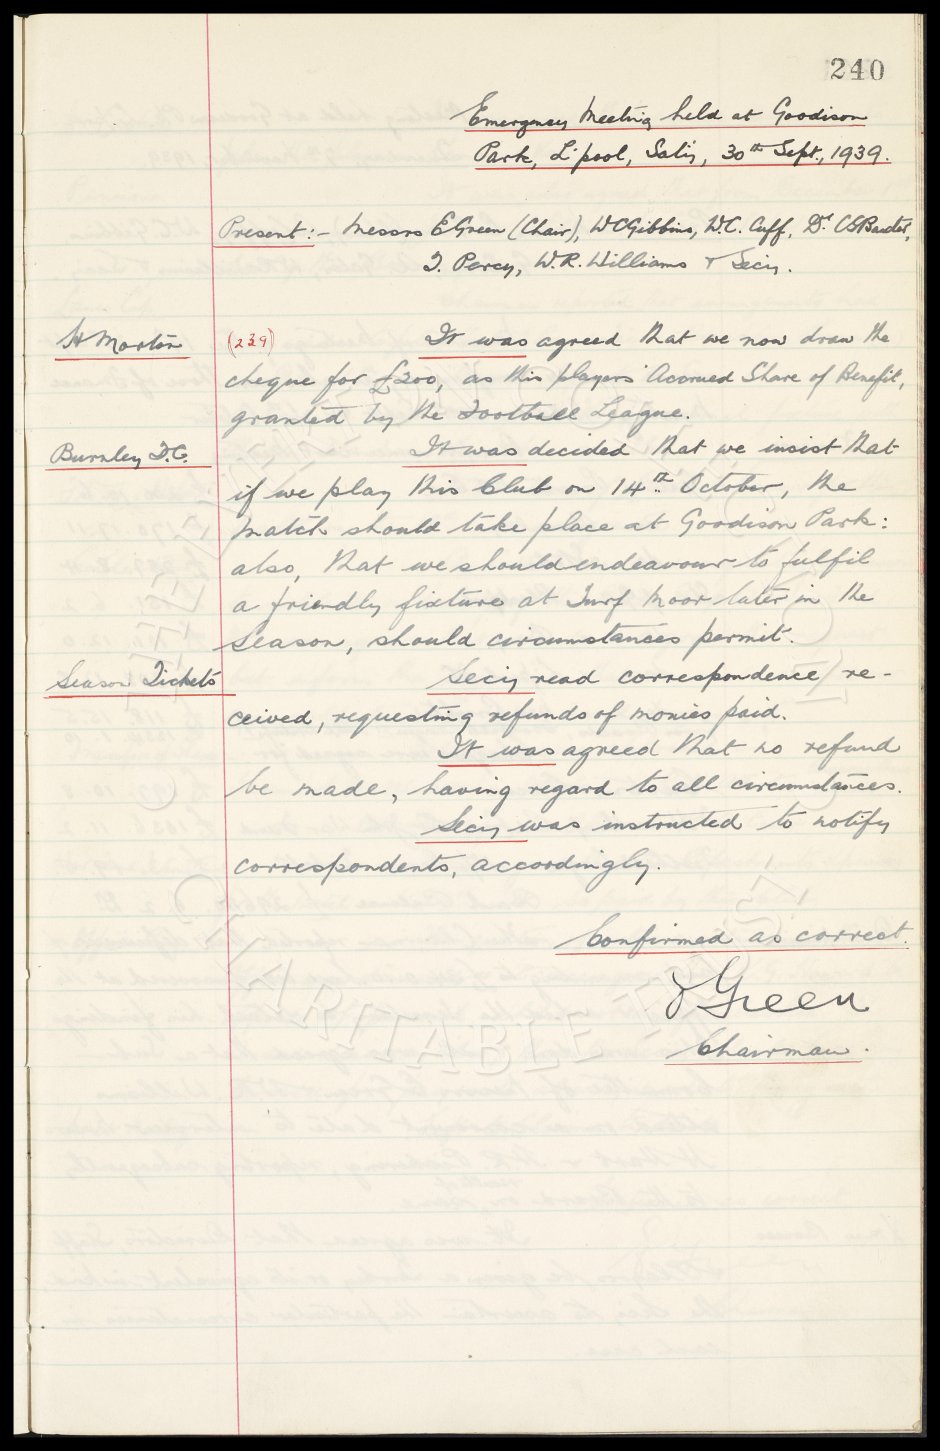 240
Emergency Meeting held at Goodison
Park, L'pool, Sat'y, 30th Sept., 1939.
Present:- Messrs E Green (Chair), W C Gibbins, W.C. Cuff, Dr. C S Baxter,
T. Percy, W.R. Williams & Sec'y.
H Morton (239) It was agreed that we now draw the
cheque for £200, as this players' Accrued Share of Benefit,
granted by the Football League.
Burnley F.C. It was decided that we insist that
if we play this Club on 14th October, the
match should take place at Goodison Park:
also, that we should endeavour to fulfil
a friendly fixture at Turf Moor later in the
season, should circumstances permit.
Season Tickets Sec'y read correspondence re-
ceived, requesting refunds of monies paid.
It was agreed that no refund
be made, having regard to all circumstances.
Sec'y was instructed to notify
correspondents, accordingly.
Confirmed as correct.
E Green
Chairman.
CHARITABLE TRUST